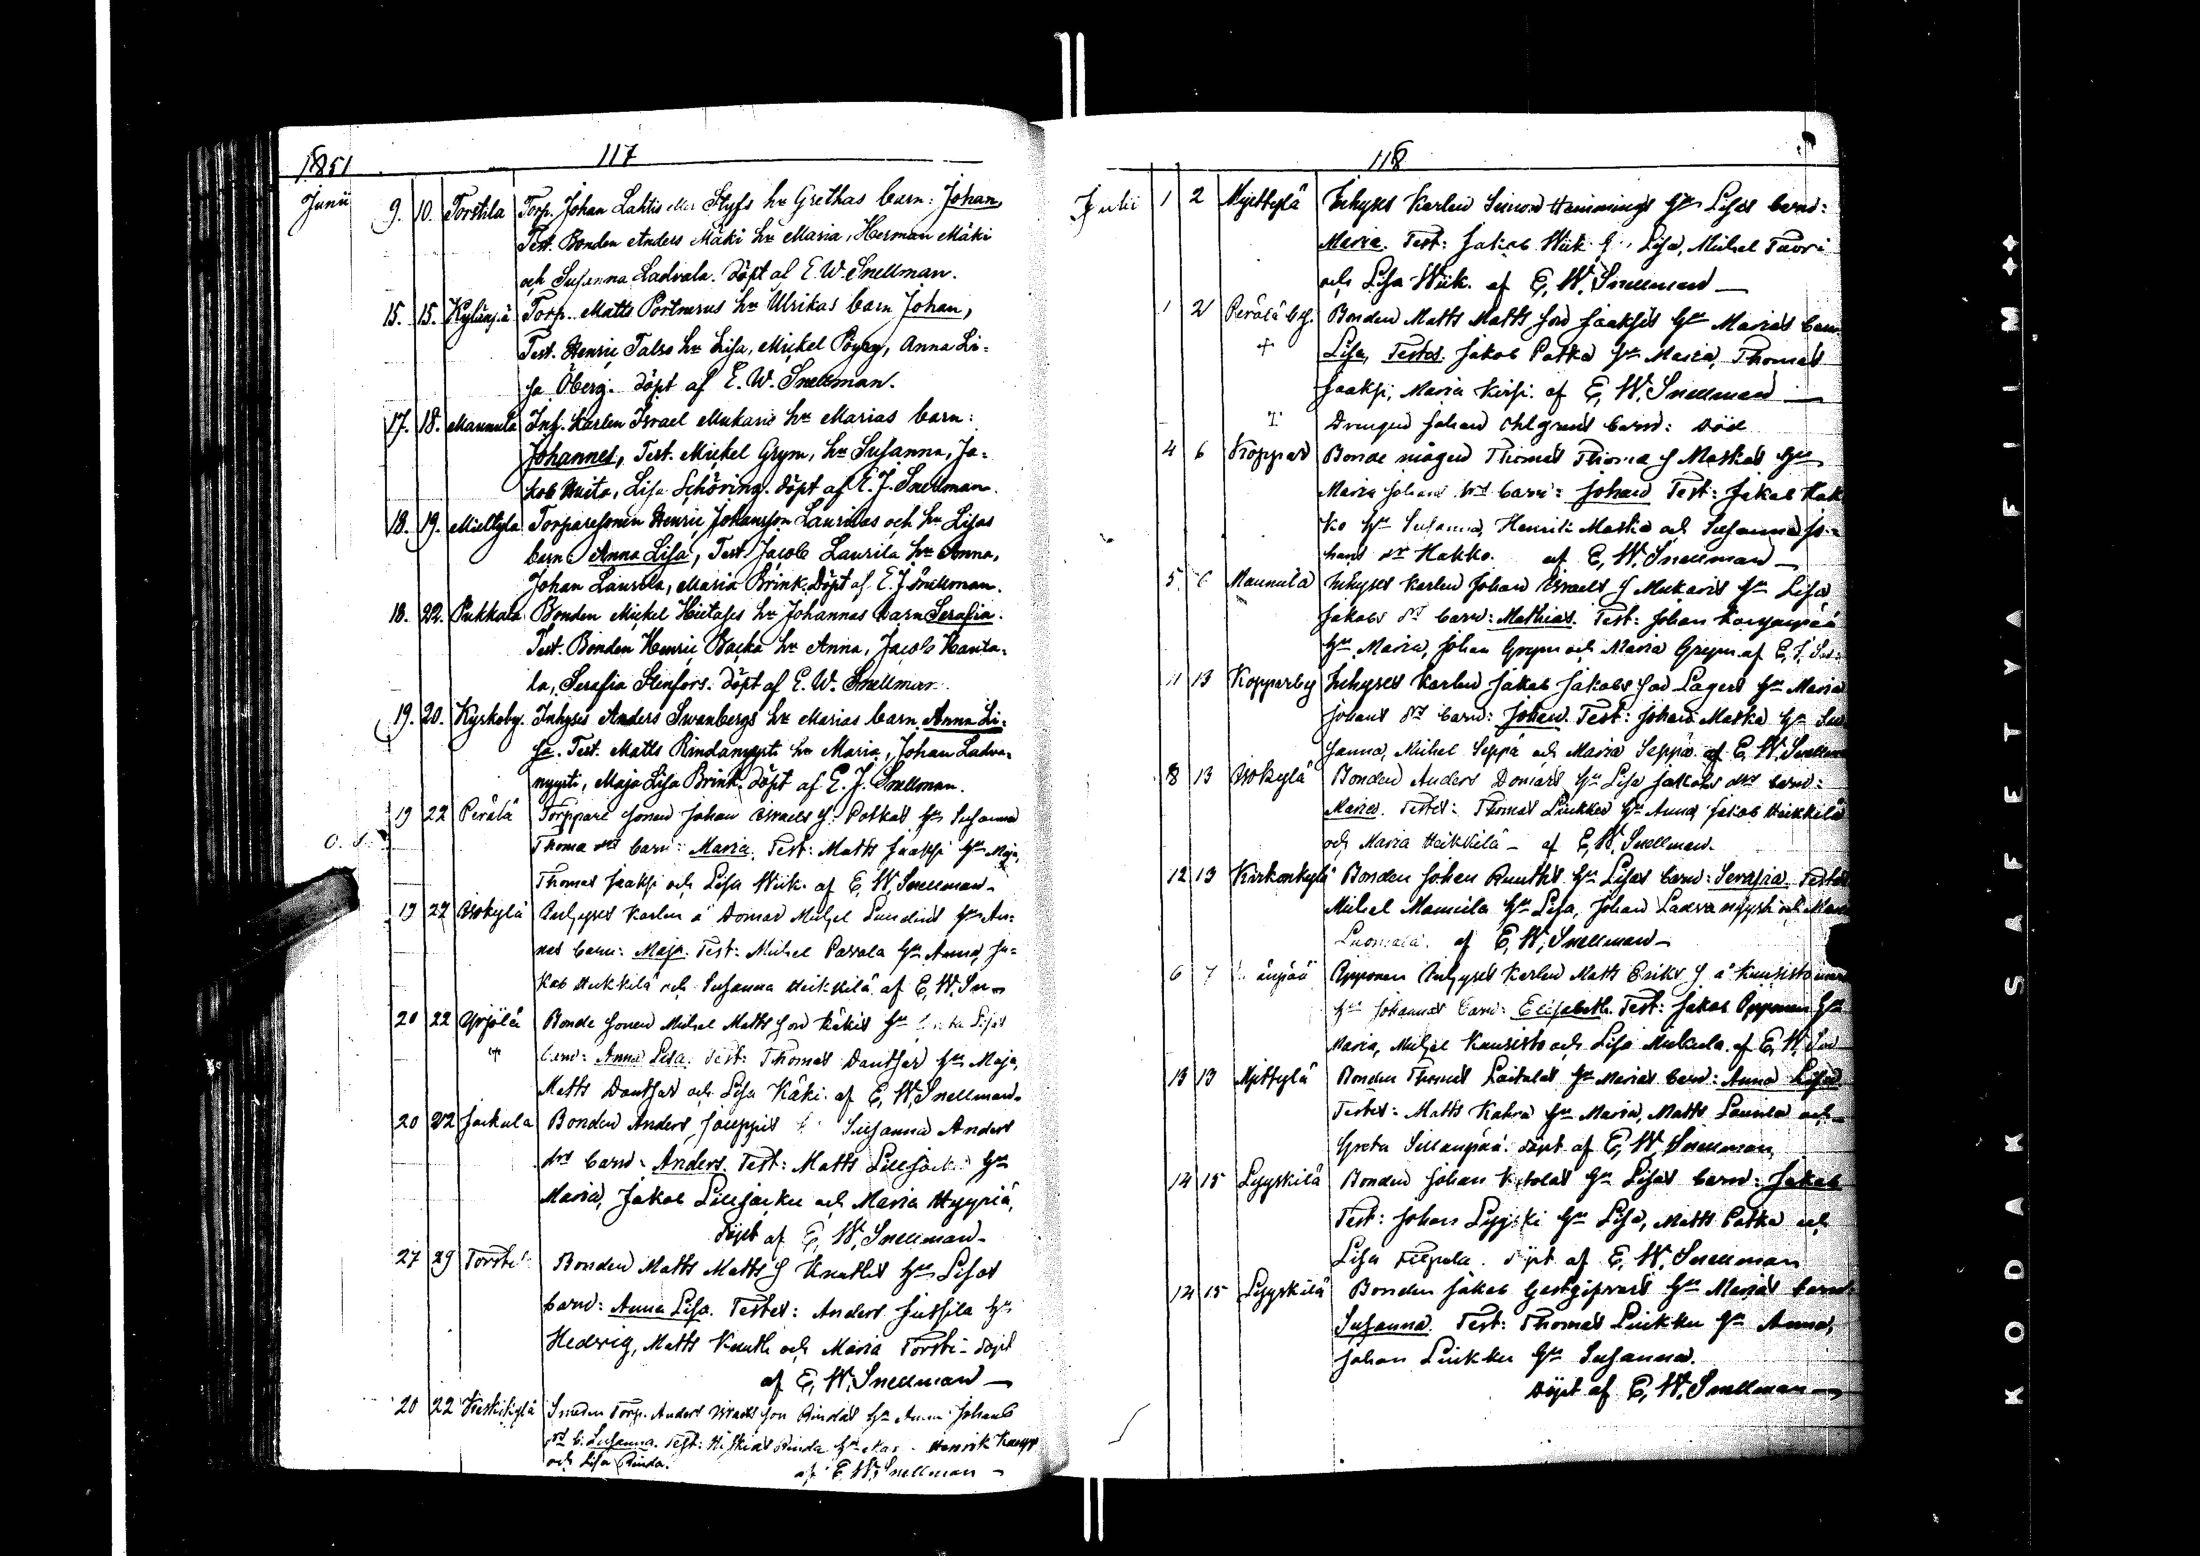 1851
117
Junii 9. 10. Torstila Torp. Johan Lahtis eller Styfs hu Grethas barn: Johan,
Test. Bonden Anders Mäki hu Maria, Herman Mäki
och Susanna Ladvala. döpt af E. W. Snellman.
15. 15. Kylänpä Torp. Matts Portnerus hu Ulrikas barn Johan,
Test. Henric Talso hu Lisa, Mickel Pöyry, Anna Li-
sa Öberg. döpt af E. W. Snellman.
17. 18. Maunula Inh. Karlen Israel Mukaris hu Marias barn:
Johannes, Test. Mickel Grym, hu Susanna, Ja-
kob Waito, Lisa Schöring. döpt af E. J. Snellman.
18. 19. Miettylä Torparesonen Henric Johansson Laurilas och hu Lisas
barn Anna Lisa, Test. Jacob Laurila hu Anna,
Johan Laurila, Maria Brink. Döpt af E. J. Snellman.
18. 22. Pukkala Bonden Mickel Hietases hu Johannas barn Serafia.
Test. Bonden Henric Backa hu Anna, Jacob Hanta-
la, Serafia Stenfors. döpt af E. W. Snellman.
19. 20. Kyrkoby. Inhyses Anders Swanbergs hu Marias barn Anna Li-
sa. Test. Matts Rindanyysti hu Maria, Johan Ladva-
nyysti, Maja Lisa Brink. döpt af E. J. Snellman.
19 22 Perälä Torppare sonen Johan Israels s. Potkas hu Susanna
Thoma dr barn: Maria. Test: Matts Jaaksi hu Maja,
Thomas Jaaksi och Lisa Wiik. af E. W. Snellman
19 22 Isokylä Inhyses Karlen å Domar Michel Lundins hu An-
nas barn: Maja. Test: Michel Parvala hu Anna, Ja-
kob Heikkilä och Susanna Heikkilä af E. W. Sn
20 22 Yrjölä Bonde sonen Michel Matts son Käkis hu Lisas
barn: Anna Lisa. Test: Thomas Dantsar hu Maja,
Matts Dantsar och Lisa Käki. af E. W. Snellman.
20 22 Jaakula Bonden Anders Juuppis Susanna Anders
drs barn: Anders. Test: Matts hu
Maria, Jakob och Maria Hyypiä,
Döpt af E. W. Snellman
27 29 Torsti Bonden Matts Matts s Knuths hu Lisas
barn: Anna Lisa. Testes: Anders Jussila hu
Hedvig, Matts Knuth och Maria Torsti - döpt
af E. W. Snellman
20 22 Keskikylä Smeden Torp. Anders Israels son Rindas hu Anna Johans
dr b. Susanna. Test: Rinda hu Henrik
och Lisa Rinda.
af E. W. Snellman
118
Julii 1 2 Myettylä Inhyses Karlen Simon Hemmings hu Lisas barn:
Maria. Test: Jakob Wiik h. Lisa, Michel Tavri
och Lisa Wiik. af E. W. Snellman
1 2 Perälä by. Bonden Matts Matts son Jaaksis hu Marias barn
Lisa, Testes. Jakob Potka hu Maria, Thomas
Jaaksi, Maria Kirsi. af E. W. Snellman
Drengen Johan Ohlgrens barn: Död
4 6 Koppar Bonde mågen Thomas Thoma s Maskas hu
Maria Johans drs barn: Johan Test: Jakob Hak
ko hu Susanna, Henrik Maska och Susanna Jo-
hans dr Hakko. af E. W. Snellman
5 6 Maunula Inhyses Karlen Johan Israels s Mukaris hu Lisa
Jakobs dr barn: Mathias. Test: Johan
hu Maria, Johan Grym och Maria Grym af E. J. Snel-
11 13 Kopparby Inhyses Karlen Jakob Jakobs son Lagers hu Maria
Johans dr barn: Johan. Test: Johan Maska hu Su
sanna, Michel Seppä och Maria Seppä. af E. W. Snellman
8 13 Isokylä Bonden Anders Domars hu Lisa Jakobs drs barn:
Maria. Testes: Thomas Liukku hu Anna Jakob Heikkilä
och Maria Heikkilä - af E. W. Snellman.
12 13 Kirkonkylä Bonden Johan Ruuths hu Lisas barn: Serafia. Testes
Michel Mannila hu Lisa, Johan Ladvanyysti och
Luomala. af E. W. Snellman
6 7 Opponen Inhyses Karlen Matts Eriks s å Kuusisto
hu Johannas barn: Elisabeth. Test: Jakob Opponen hu
Maria, Michel Kuusisto och Lisa Mukula. af E. W. Sn
13 13 Myettylä Bonden Thomas Laitalas hu Marias barn: Anna Lisa.
Testes: Matts Kahra hu Maria, Matts Laurila och
Greta Sillanpää. döpt af E. W. Snellman
14 15 Lyyskilä Bonden Johan hu Lisas barn: Jakob
Test: Johan Lyyski hu Lisa, Matts Potka och
Lisa döpt af E. W. Snellman
14 15 Lyyskilä Bonden Jakob Gestgifvars hu Marias barn:
Susanna. Test: Thomas Liukku hu Anna,
Johan Liukku hu Susanna.
Döpt af E. W. Snellman
KODAK SAFETY FILM